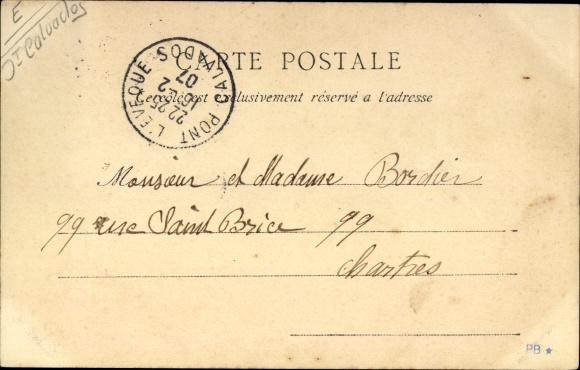 E
Dt Calvados
CARTE POSTALE
Ce côté est exclusivement réservé a l'adresse
PONT L'EVEQUE CALVADOS
22 25
16 - 2
07
Monsieur et Madame Bordier
99 rue Saint Brice 99
Chartres
PB